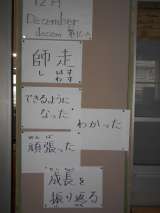 12月
December
decem
師走
しわす
できるように
なった
わかった
がんば
頑張った
成長を
振り返る